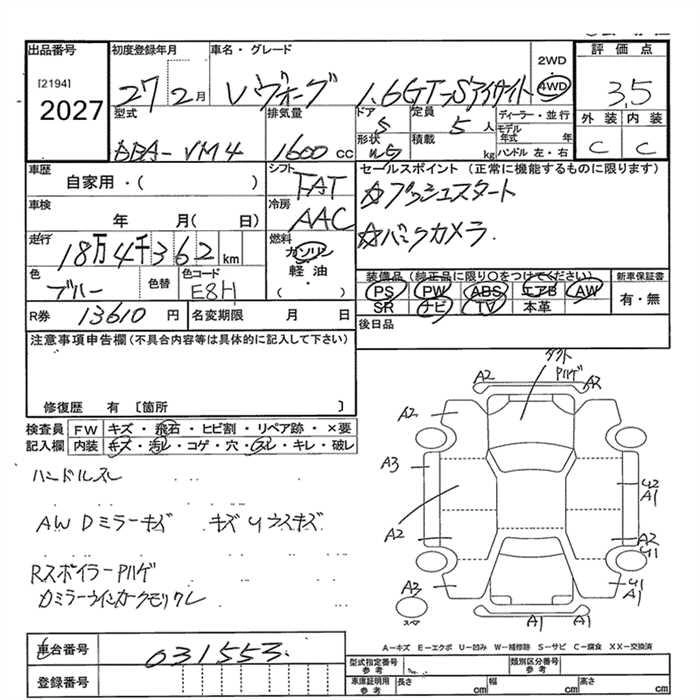 出品番号
[2194]
2027
初度登録年月
27 2月
車名・グレード
レヴォーグ 1.6GT-Sアイサイト
2WD
4WD
評価点
3.5
外装 内装
C C
型式
DBA-VM4
排気量
1600 cc
ドア
5
定員
5 人
形状
WG
積載
kg
ディーラー・並行
モデル年式 年
ハンドル 左・右
車歴
自家用・( )
シフト
FAT
車検
年 月( 日)
冷房
AAC
セールスポイント(正常に機能するものに限ります)
☆プッシュスタート
☆バックカメラ
走行
18万4千362 km
燃料
ガソリン
軽油
・( )
色
ブルー
色替
色コード
E8H
装備品(純正品に限り○をつけてください)
PS PW ABS エアB AW
SR ナビ TV 本革
新車保証書
有・無
R券 13610 円
名変期限 月 日
後日品
注意事項申告欄(不具合内容等は具体的に記入して下さい)
修復歴 有 [箇所 ]
検査員記入欄
FW キズ・飛石・ヒビ割・リペア跡・×要
内装 キズ・汚レ・コゲ・穴・スレ・キレ・破レ
ハンドルスレ
AW Dミラーキズ キズ Uウスキズ
Rスポイラー Pハゲ
Dミラーウインカークモリクレ
ダクト
Pハゲ
A2 A2
A2
A3
U2
A1
A2
A2
U1
A3
U1
A1
A1 A1
スペア
A-キズ E-エクボ U-凹み W-補修跡 S-サビ C-腐食 XX-交換済
車台番号
031553
登録番号
型式指定番号 参考
類別区分番号 参考
車庫証明用 参考
長さ cm
幅 cm
高さ cm